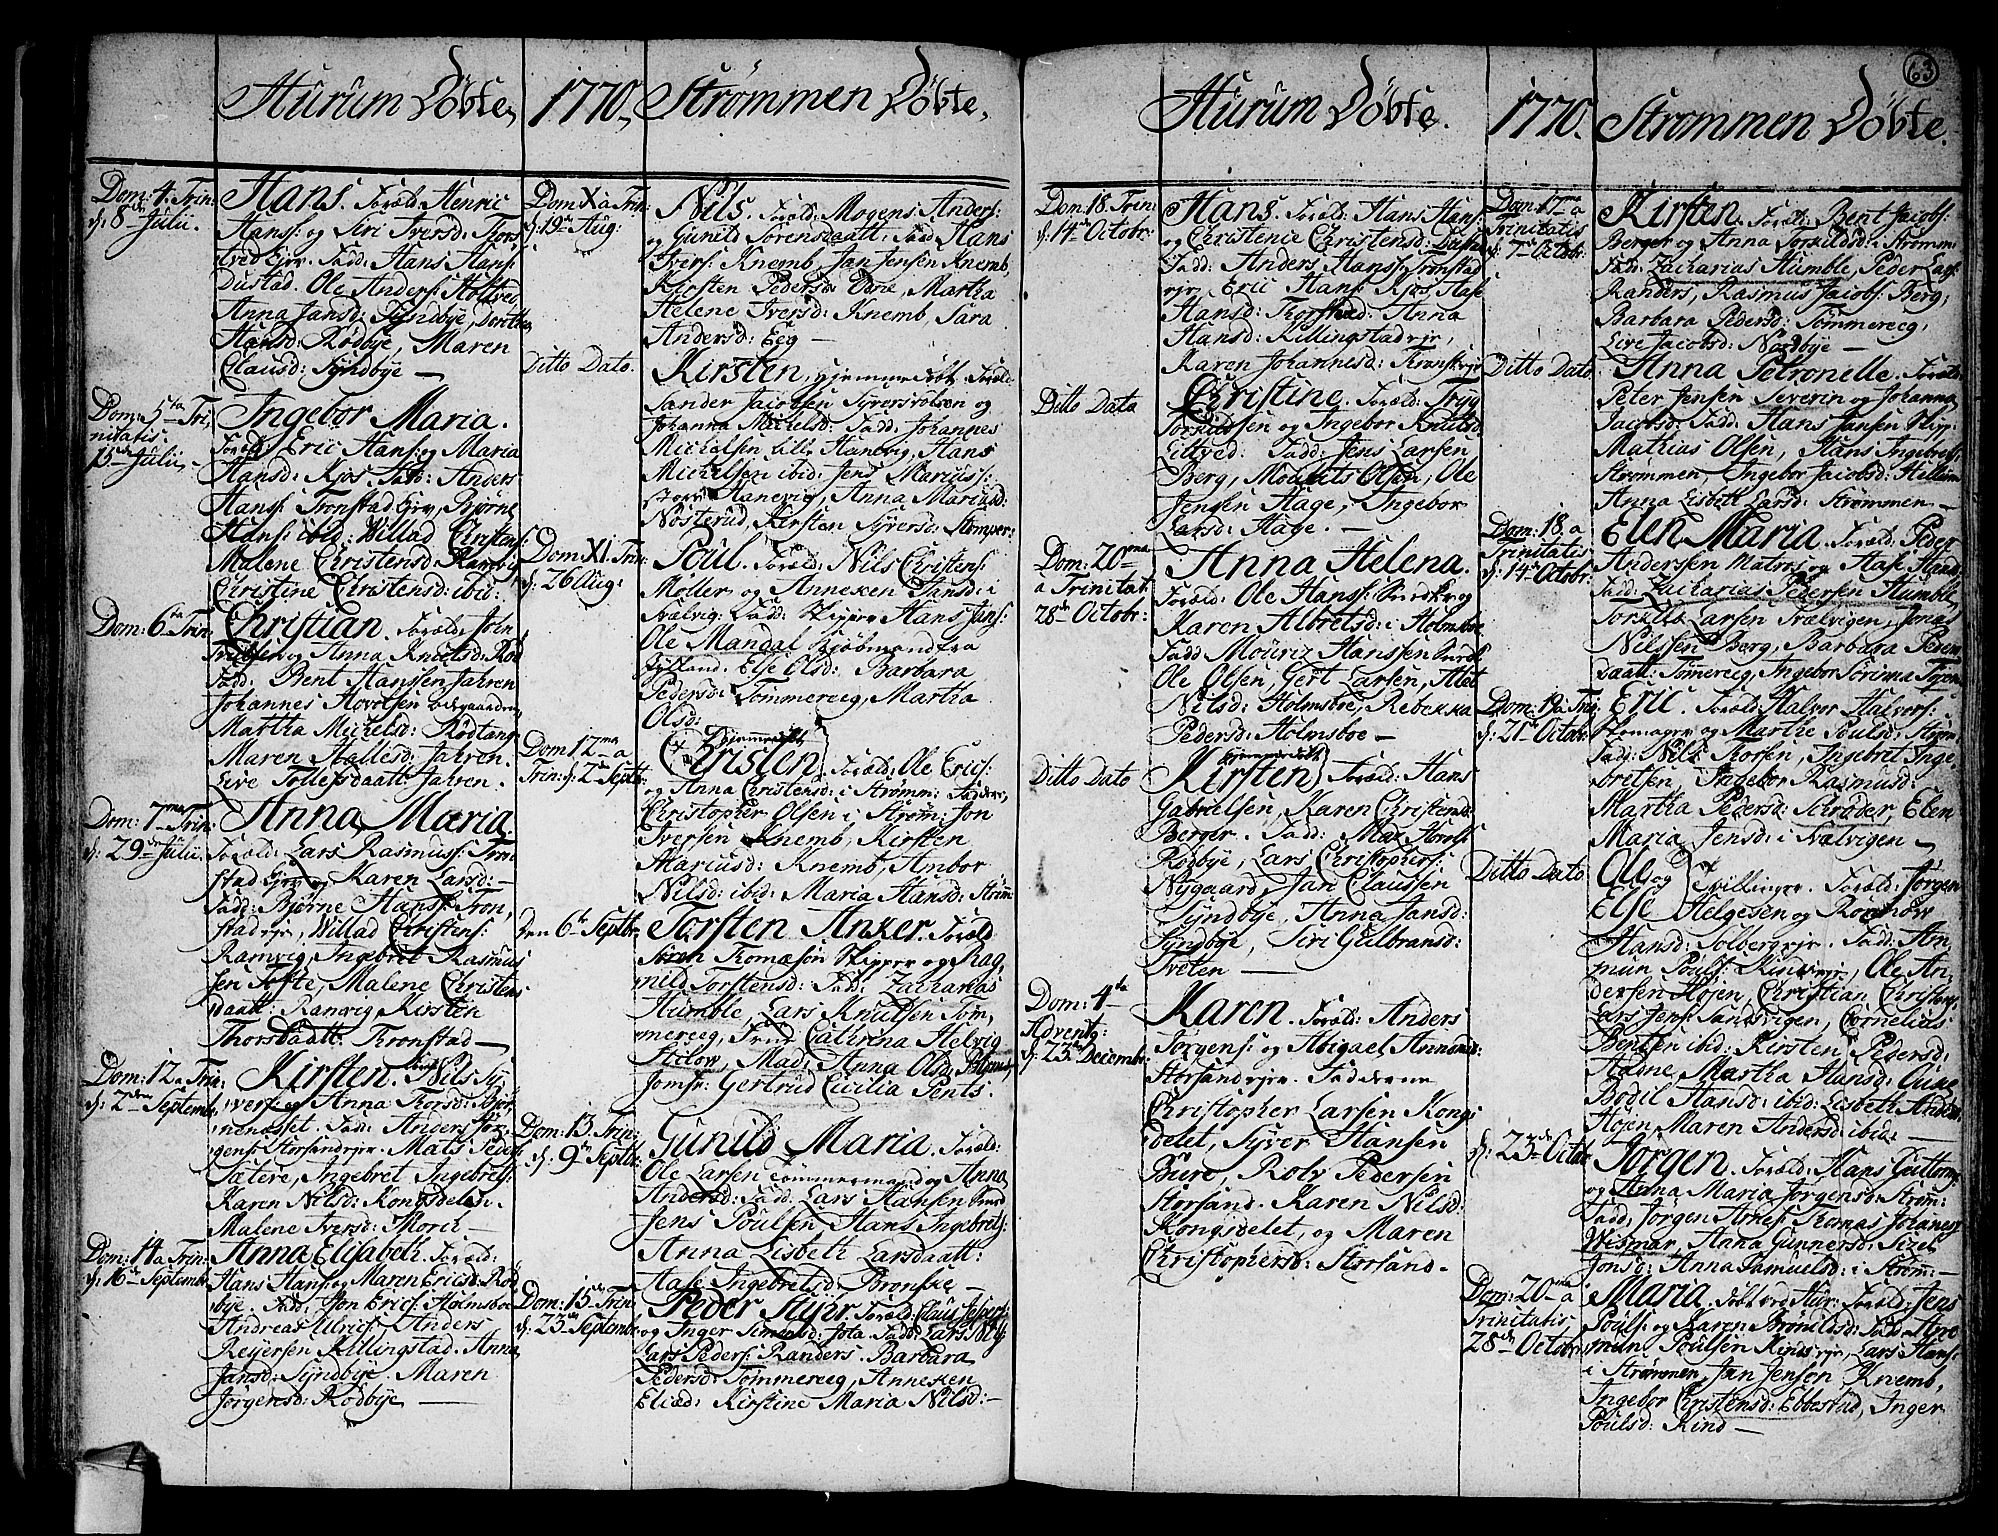 Hurum Döbte,
Dom: 4. Trin:
d. 8de Julii.
Hans. Foræld: Henric
Hans: og Siri Iversd: Tors
tved Ejer. Fadd: Hans Hans:
Dustad. Ole Anders: Holtved
Anna Jansd: Syndbye, Dorothea
Hansd: Rödbye, Maren
Clausd: Syndbye —
Dom: 5ta Tri,
nitatis.
15de Julii,
Ingebor Maria.
Foræld: Eric Hans: og Maria
Hansd: Kjos. Fadd: Anders
Hans: Tronstad Ejer, Bjørne
Hans: ibid: Willad Christens:
Malene Christensd: Ramvig,
Christine Christensd: ibid:
Dom: 6ta Trin:
Christian. Foræld: John
Truelsen og Anna Knutsd: Röd
Fadd: Bent Hanssen Jahren
Johannes Hovelsen
Martha Michelsd: Rödtang
Maren Hallesd: Jahren.
Live Tollefsdaatt: Jahren.
Dom: 7ma Trin:
d: 29de Julii.
Anna Maria.
Foræld: Lars Rasmus: Tron
stad Ejer og Karen Larsd: —
Fadd: Bjørne Hans: Tron,
stadejer, Willad Christens:
Ramvig, Ingebret Rasmus
sen Tofte, Malene Christens
daatt: Ramvig Kirsten
Thorsdaatt: Tronstad —
Dom: 12a Trin:
d: 2den Septemb:
Kirsten. Foræld: Nils Sy,
vers: og Anna Thorsd: Bjør,
nenesset. Fadd: Anders Jör,
gens: Storsandejer. Mats Peders:
Sætere, Ingebret Ingebrets:
Karen Nilsd: Kongsdelet.
Malene Iversd: Morit —
Dom: 14a Trin:
d: 16de Septembr:
Anna Elisabeth. Foræld:
Hans Hans: og Maren Ericsd: Röd
bye. Fadd: Jon Erics: Holmsboe
Andreas Ulrics: Anders
Reyersen Killingstad. Anna
Jansd: Syndbye. Maren
Jörgensd: Rödbye —
1770,
Strømmen Döbte.
Dom Xa Trin:
d: 19de Aug:
Nils. Foræld: Mogens Anders:
og Gunild Sørensdaatt: Fadd: Hans
Ivers: Knemb, Jan Jensen Knemb,
Kirsten Pedersd: Odne, Martha
Helene Iversd: Knemb, Sara
Andersd: Eeg —
Ditto Dato.
Kirsten, hjemmedöbt Foræld:
Sander Jacobsen Syversvolden og
Johanna Michelsd: Fadd: Johannes
Michelsen Lille Hanevig, Hans
Michelsen ibid: Jens Marius:
store Hanevig, Anna Mariusd:
Nösterud, Kirsten Syversd: Stomper:
Dom XI. Trin:
d: 26 Aug:
Poul. Foræld: Nils Christens:
Møller og Anneken Jansd: i
Svælvig: Fadd: Skipper Hans Jans:
Ole Mandal Kjöbmand fra
Jylland: Else Olsd: Barbara
Pedersd: Tømmereeg, Martha
Olsd:
Dom 12ma a
Trin: d: 2den Septb:
Hjemmedöbt
Christen Foræld: Ole Erics:
og Anna Christensd: i Strömm: Faddere,
Christopher Olsen i Strøm: Jon
Iversen Knemb, Kirsten
Mariusd: Knemb, Anbor
Nilsd: ibid: Maria Hansd: Strömm:
Den 6te Septbr:
Torsten Anker. Foræld:
Sören Tomæsön Skipper og Rag,
nild Torstensd: Fadd: Zacharias
Humble, Lars Knutsen Töm,
mereeg, Frue Cathrina Helvig
Stilow, Mad: Anna Olsd:
Jomfr: Gertrud Cicilia Pents.
Dom: 13. Trin:
d: 9de Septbr:
Gunild Maria. Foræld:
Ole Larsen Tömmermand og Anna
Andersd: Fadd: Lars Hansen
Jens Poulsen Hans Ingebrets:
Anna Lisbeth Larsdaatt:
Aale Ingebretsd: Bronske —
Dom: 15de Trin:
d: 23de Septemb:
Peder Stijhr. Foræld: Claus Jespers:
og Inger Simensd: Jota. Fadd: Lars Mög
Lars Peders: Randers. Barbara
Pedersd: Tommereeg, Anneken
Eliæd: Kirstine Maria Nilsd: —
Hurum Döbte.
Dom. 18. Trin:
d: 14de Octobr:
Hans. Foræld: Hans Hans:
og Christenie Christensd:
Fadd: Anders Hans: Tronstad
ejer, Eric Hans: Kjos Aase
Hansd: Tronstad. Anna
Hansd: Killingstadejer,
Karen Johannesd: Tronstejer
Ditto Dato
Christine. Foræld: Tryg
Torkildsen og Ingebor Knutsd:
Littved. Fadd: Jens Larsen
Berg, Mourits Olsen, Ole
Jensen Hage, Ingebor
Larsd: Hage. —
Dom: 20ma
a Trinitat:
28de Octobr:
Anna Helena.
Foræld: Ole Hans: Snedker og
Karen Albretsd: i Holmsboe
Fadd Mouriz Hanssen
Ole Olsen, Gert Larsen, Alet
Nilsd: Holmsboe, Rebekka
Pedersd: Holmsboe —
Ditto Dato
hjemmedöbt
Kirsten Foræld: Hans
Gabrielsen, Karen Christensd:
Berger. Fadd: Max Thors:
Rödbye, Lars Christophers:
Nygaard, Jan Claussen
Syndbye, Anna Jansd:
Syndbye, Siri Gulbransd:
Tveten —
Dom: 4ta
Advent:
d: 23de Decembr:
Karen. Foræld: Anders
Jörgens: og Abigael Annansd:
Storsandejer. Fadderne
Christopher Larsen Kongs
delet, Syver Hansen
Bure, Rolv Pedersen
Storsand. Karen Nilsd:
Kongsdelet, og Maren
Christophersd: Storsand.
63
1770.
Strømmen Döbte.
Dom 17ma a
Trinitatis
d: 7de Octobr:
Kirsten. Foræld: Bent Jacobs:
Berger og Anna Torkildsd: i Strømm:
Fad: Zacharias Humble, Peder Lars:
Randers, Rasmus Jacobs: Berg,
Barbara Pedersd: Tömmereeg,
Live Jacobsd: Nordbye —
Ditto Dato
Anna Petronelle. Foræld:
Peter Jensen Severin og Johanna
Jacobsd: Fadd: Hans Jansen Skipp:
Mathias Olsen, Hans Ingebrets:
Strømmen, Ingebor Jacobsd: Hellum
Anna Lisbeth Larsd: Strømmen —
Dom: 18. a
Trinitatis
d: 14de Octobr:
Elen Maria. Foræld: Peder
Andersen Matros og Aase Hansd:
Fadd: Zacharias Pedersen Humble,
Torkild Larsen Svælvigen, Jonas
Nilssen Berg, Barbara Peders
daatt: Tömereeg, Ingebor Sörinna
Dom: 19a Tri:
d: 21de Octobr:
Eric. Foræld: Halvor Halvors:
Skomager og Marthe Poulsd: Ström:
Fadd: Nils Thorsen, Ingebret Inge
bretsen, Ingebor Rasmusd:
Martha Pedersd: Schröder, Elen
Maria Jensd: i Svælvigen —
Ditto Dato
Ole og
Else Tvillinger. Foræld: Jørgen
Helgesen og
Hansd: Solbergejer. Fadd: Am
mun Pouls: Kindejer, Ole An
dersen Höjen, Christian Christens:
Lars Jens: Sandvigen, Cornelius
Bentsen ibid: Kirsten Pedersd:
Aadne Martha Hansd:
Bodil Hansd: ibid: Lisbeth Andersd:
Höjen, Maren Andersd: ibid: —
d: 23de Octbr:
Jörgen. Foræld: Hans Guttorms:
og Anna Maria Jörgensd: Ström:
Fadd, Jørgen Arnes: Thomas Johannes:
Wismar, Anna Gunnersd: Sizel
Jonsd: Anna Samuelsd: i Strøm: —
Dom: 20ma a
Trinitatis
28de Octobr:
Maria. Döbt ved Hur: Foræld: Jens
Pouls: og Karen Bronildsd: Fadd: Am
mun Poulsen Kindejer, Lars Hans:
i Strømmen, Jan Jenson Knemb,
Ingebor Christensd: Ebbestad, Inger
Poulsd: Kind —